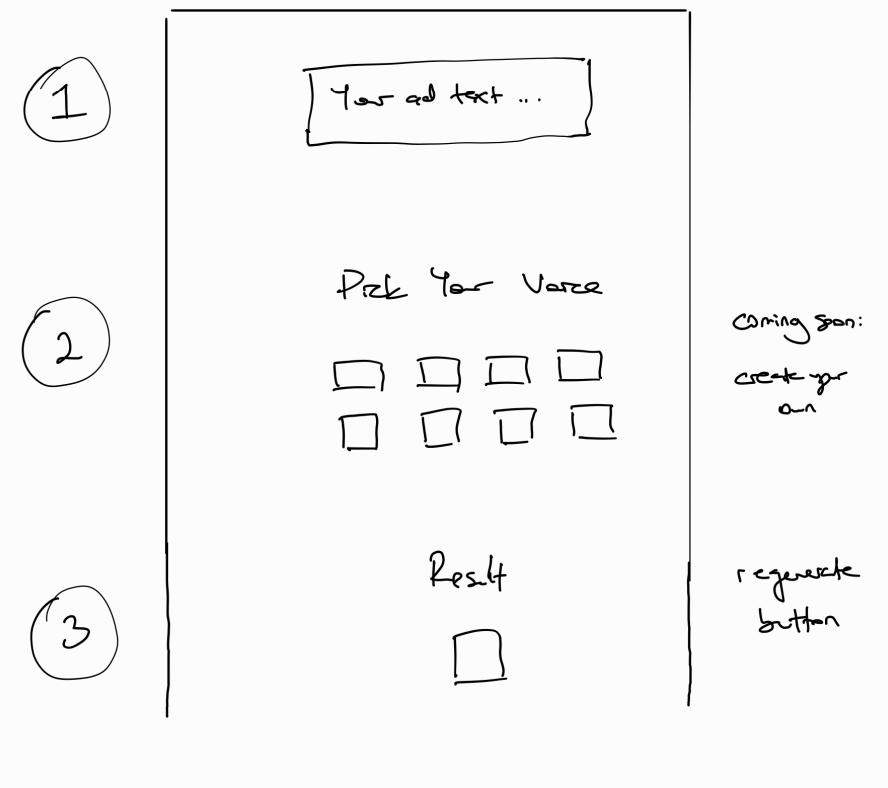 1
Your ad text ...
2
Pick Your Voice
coming soon:
create your
own
3
Result
regenerate
button